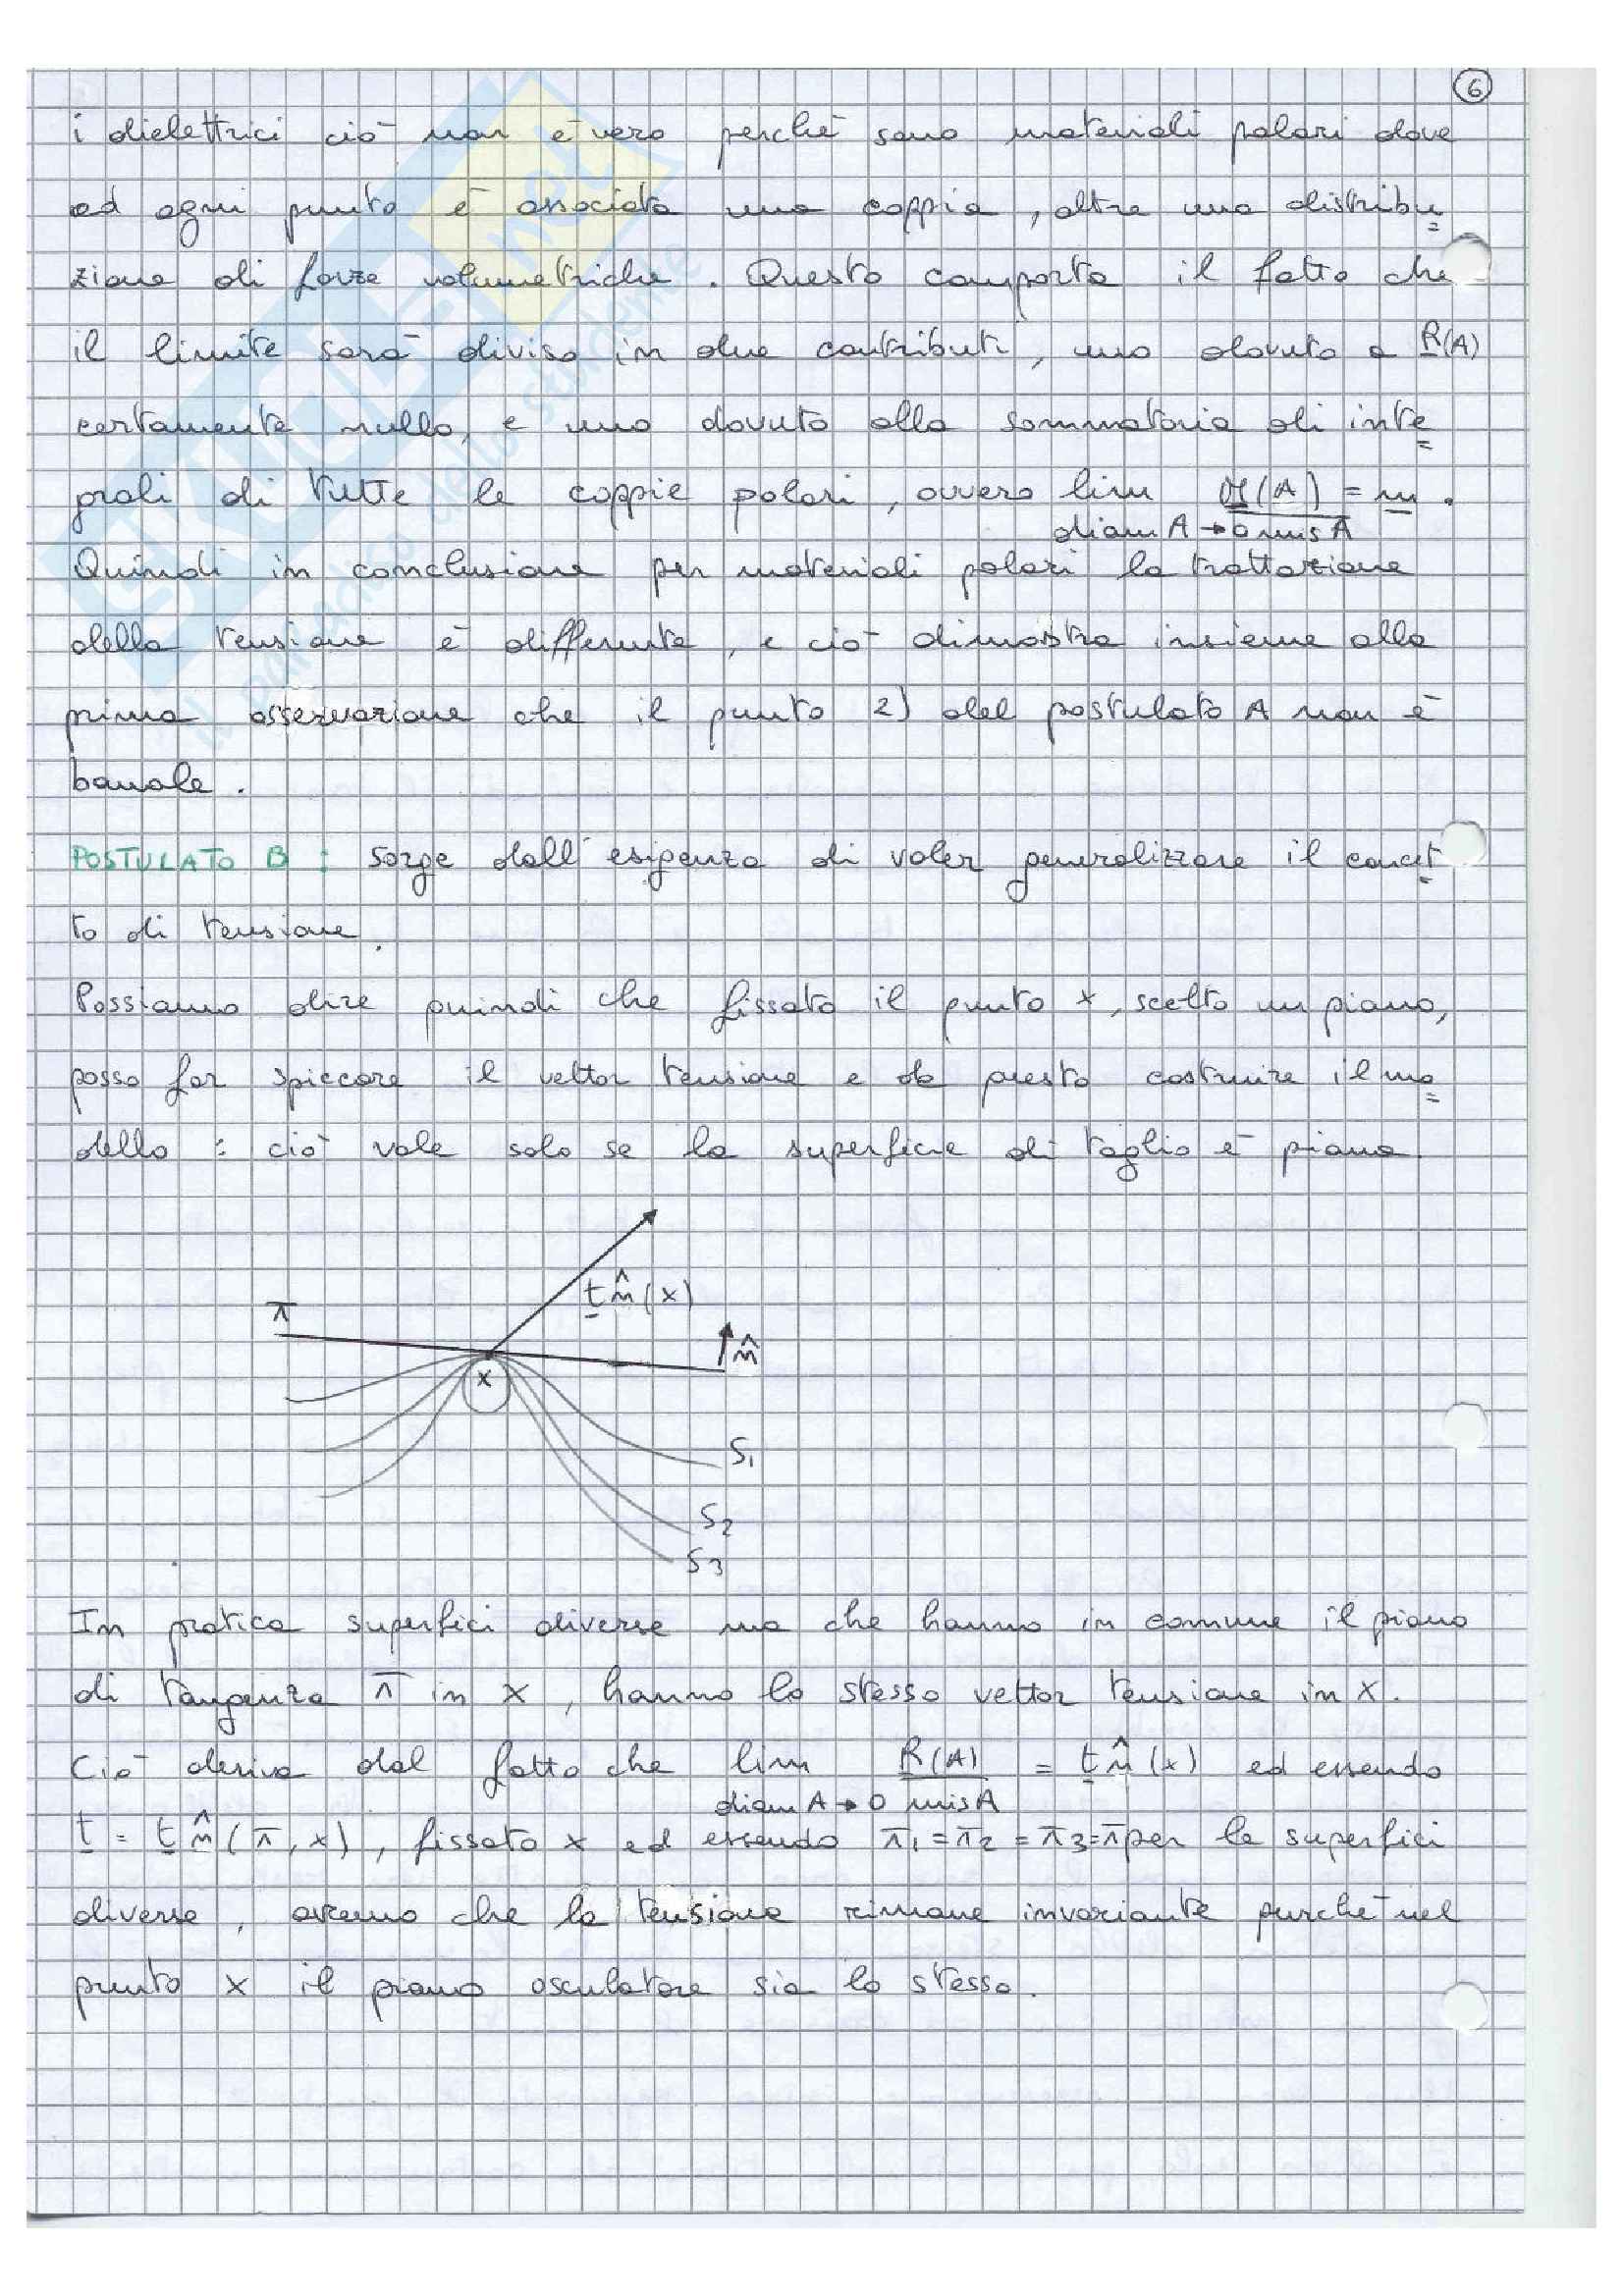 6
i dielettrici ciò non è vero perchè sono materiali polari dove
ad ogni punto è associata una coppia, oltre una distribu
zione di forze volumetriche. Questo comporta il fatto che
il limite sarà diviso in due contributi, uno dovuto a R(A)
certamente nullo, e uno dovuto alla sommatoria di inte
grali di tutte le coppie polari, ovvero lim M(A) = m.
diam A → 0 mis A
Quindi in conclusione per materiali polari la trattazione
della tensione è differente, e ciò dimostra insieme alla
prima osservazione che il punto 2) del postulato A non è
banale.
POSTULATO B : Sorge dall'esigenza di voler generalizzare il concet
to di tensione.
Possiamo dire quindi che fissato il punto x, scelto un piano,
posso far spiccare il vettor tensione e da questo costruire il mo
dello : ciò vale solo se la superficie di taglio è piana.
t n̂ (x)
π
n̂
x
S1
S2
S3
In pratica superfici diverse ma che hanno in comune il piano
di tangenza π in x, hanno lo stesso vettor tensione in x.
Ciò deriva dal fatto che lim R(A) = t n̂ (x) ed essendo
diam A → 0 mis A
t = t n̂ (π, x), fissato x ed essendo π1 = π2 = π3 = π per le superfici
diverse, avremo che la tensione rimane invariante purchè nel
punto x il piano osculatore sia lo stesso.